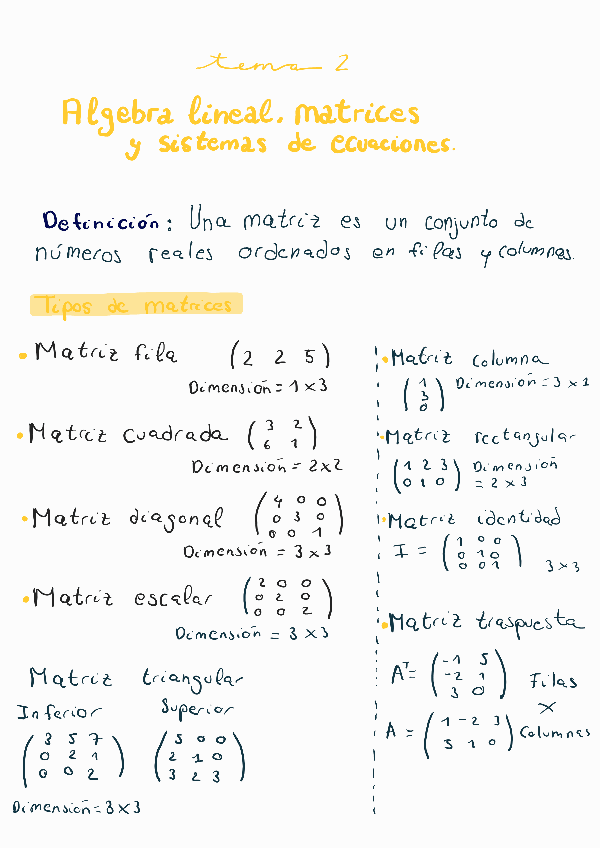 tema 2
Algebra lineal. matrices
y sistemas de ecuaciones.
Definición: Una matriz es un conjunto de
números reales ordenados en filas y columnas.
Tipos de matrices
• Matriz fila (2 2 5)
Dimensión = 1 x 3
• Matriz cuadrada (3 2
6 1)
Dimensión = 2x2
• Matriz diagonal (4 0 0
0 3 0
0 0 1)
Dimensión = 3 x 3
• Matriz escalar (2 0 0
0 2 0
0 0 2)
Dimensión = 3 x 3
Matriz triangular
Inferior Superior
(3 5 7 (5 0 0
0 2 1 2 1 0
0 0 2) 3 2 3)
Dimensión = 3 x 3
• Matriz columna
(1
3
0) Dimensión = 3 x 1
• Matriz rectangular
(1 2 3 Dimensión
0 1 0) = 2 x 3
• Matriz identidad
I = (1 0 0
0 1 0
0 0 1) 3 x 3
• Matriz traspuesta
Aᵀ = (-1 5
-2 1
3 0) Filas
x
A = (1 -2 3 Columnas
5 1 0)